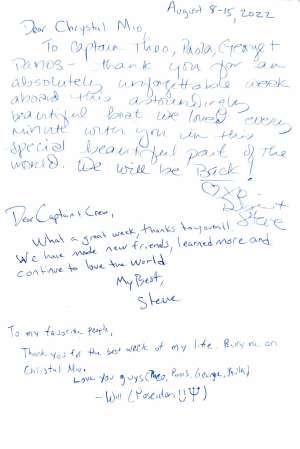 August 8-15, 2022
Dear Chrystal Mio,
To Captain Theo, Paola, George +
Panos - thank you for an
absolutely unforgettable week
aboard this astoundingly
beautiful boat we loved every
minute with you in this
special beautiful part of the
world. We will be Back!
Steve
Dear Captain + Crew,
What a great week, thanks to you all!
We have made new friends, learned more and
continue to love the world.
My Best,
Steve
To my favorite people,
Thank you for the best week of my life. Bury me on
Chrystal Mio.
Love you guys (Theo, Panos, George, Paola)
- Will (Poseidon Ψ)